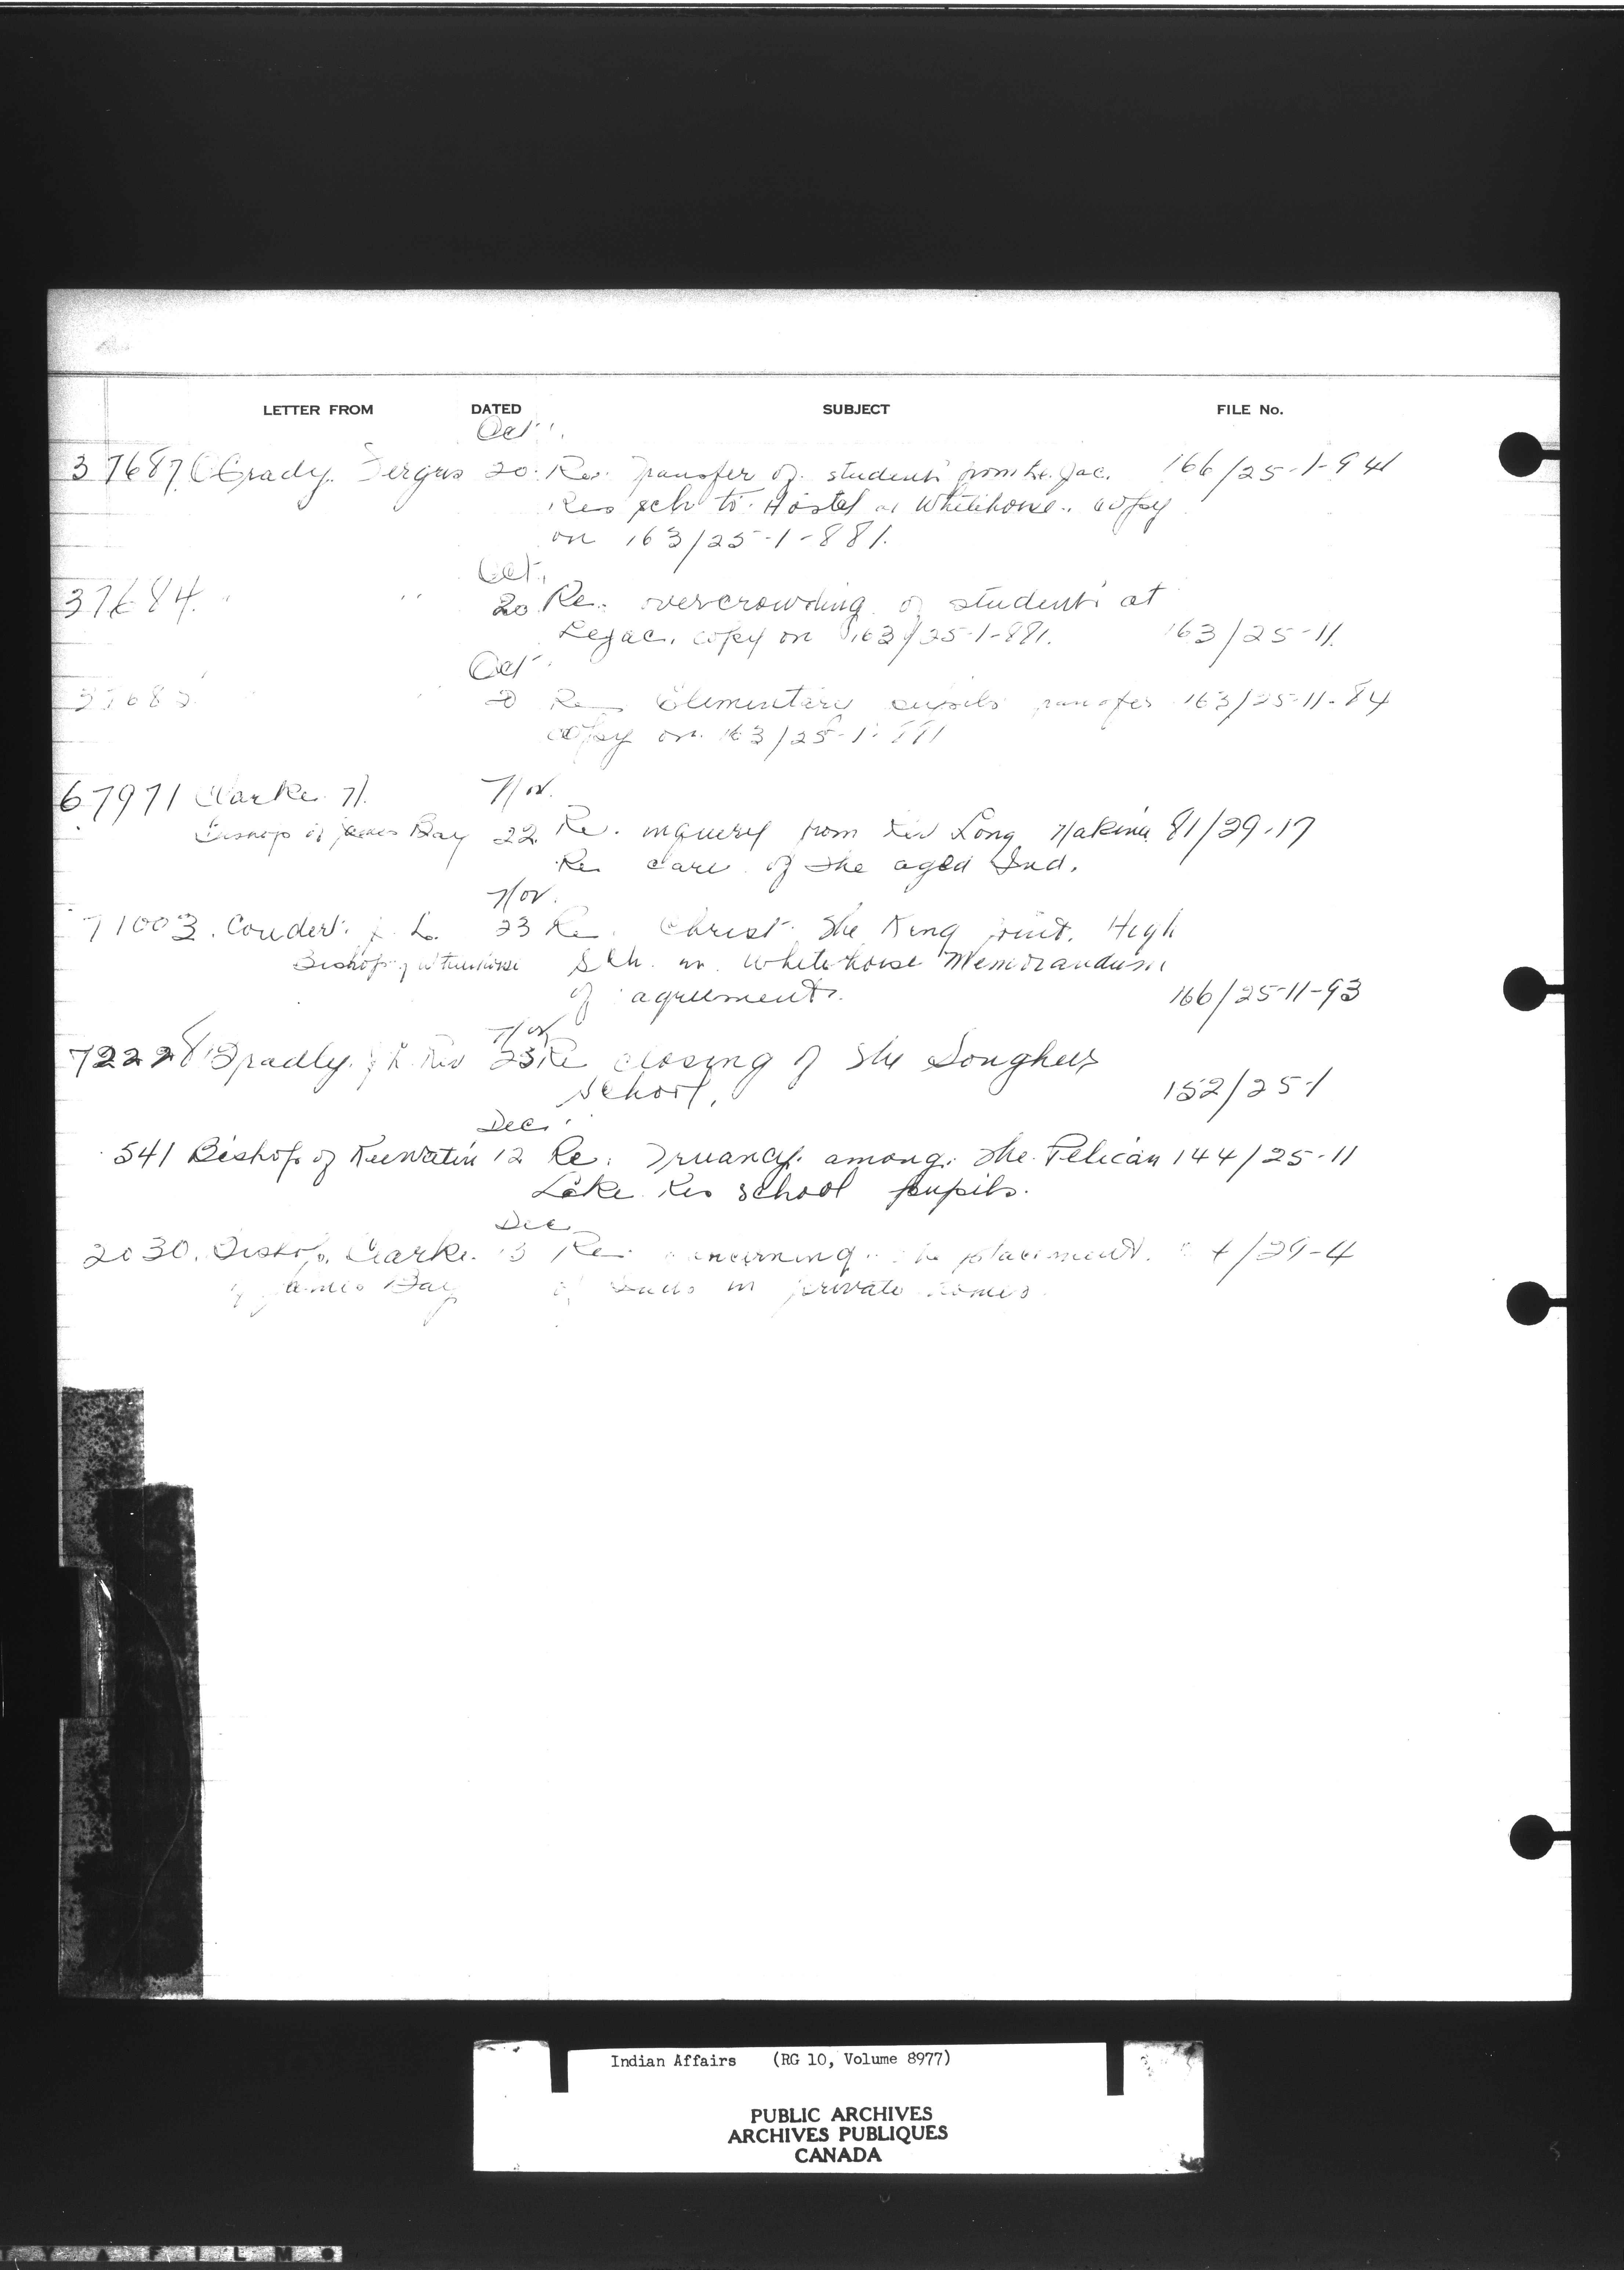 LETTER FROM DATED SUBJECT FILE No.
Oct.
37687 O'Grady. Fergus 20. Re. Transfer of students from Le Jac. 166/25-1-941
Res sch to Hostel at Whitehorse. copy
on 163/25-1-881.
Oct.
37684. " " 20 Re. overcrowding of students at
Lejac. copy on 163/25-1-881. 163/25-11.
Oct.
" Re Elementary pupils transfer 163/25-11-84
copy on 163/25-1-
67971 Clarke N. Nov.
Bishop of James Bay 22 Re. inquery from Rev Long Nakina 81/29-17
Re care of the aged Ind.
Nov.
71003. Coudert. J. L. 23 Re. Christ The King joint. High
Bishop of Whitehorse Sch. in Whitehorse Memorandum
of agreement. 166/25-11-93
Nov
72228 Bradly. Rev 23 Re closing of the Songhees
School. 152/25-1
Dec.
541 Bishop of Keewatin 12 Re. Truancy. among. the Pelican 144/25-11
Lake Res school pupils.
Dec
2030. Bishop. Clarke. 13 Re. concerning the placement. /29-4
of James Bay of in private homes.
Indian Affairs (RG 10, Volume 8977)
PUBLIC ARCHIVES
ARCHIVES PUBLIQUES
CANADA